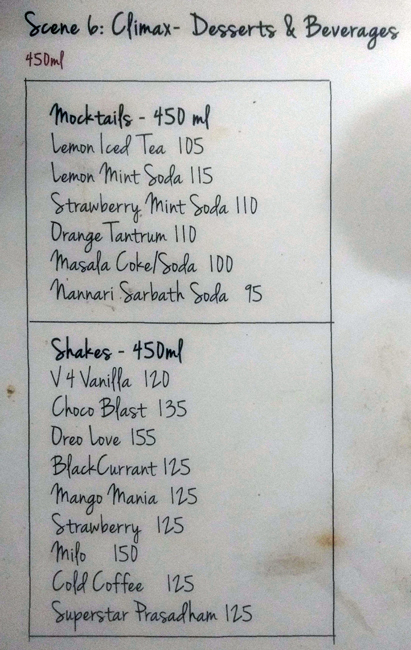 Scene 6: Climax- Desserts & Beverages
450ml
Mocktails - 450 ml
Lemon Iced Tea 105
Lemon Mint Soda 115
Strawberry Mint Soda 110
Orange Tantrum 110
Masala Coke/Soda 100
Nannari Sarbath Soda 95
Shakes - 450ml
V 4 Vanilla 120
Choco Blast 135
Oreo Love 155
BlackCurrant 125
Mango Mania 125
Strawberry 125
Milo 150
Cold Coffee 125
Superstar Prasadham 125